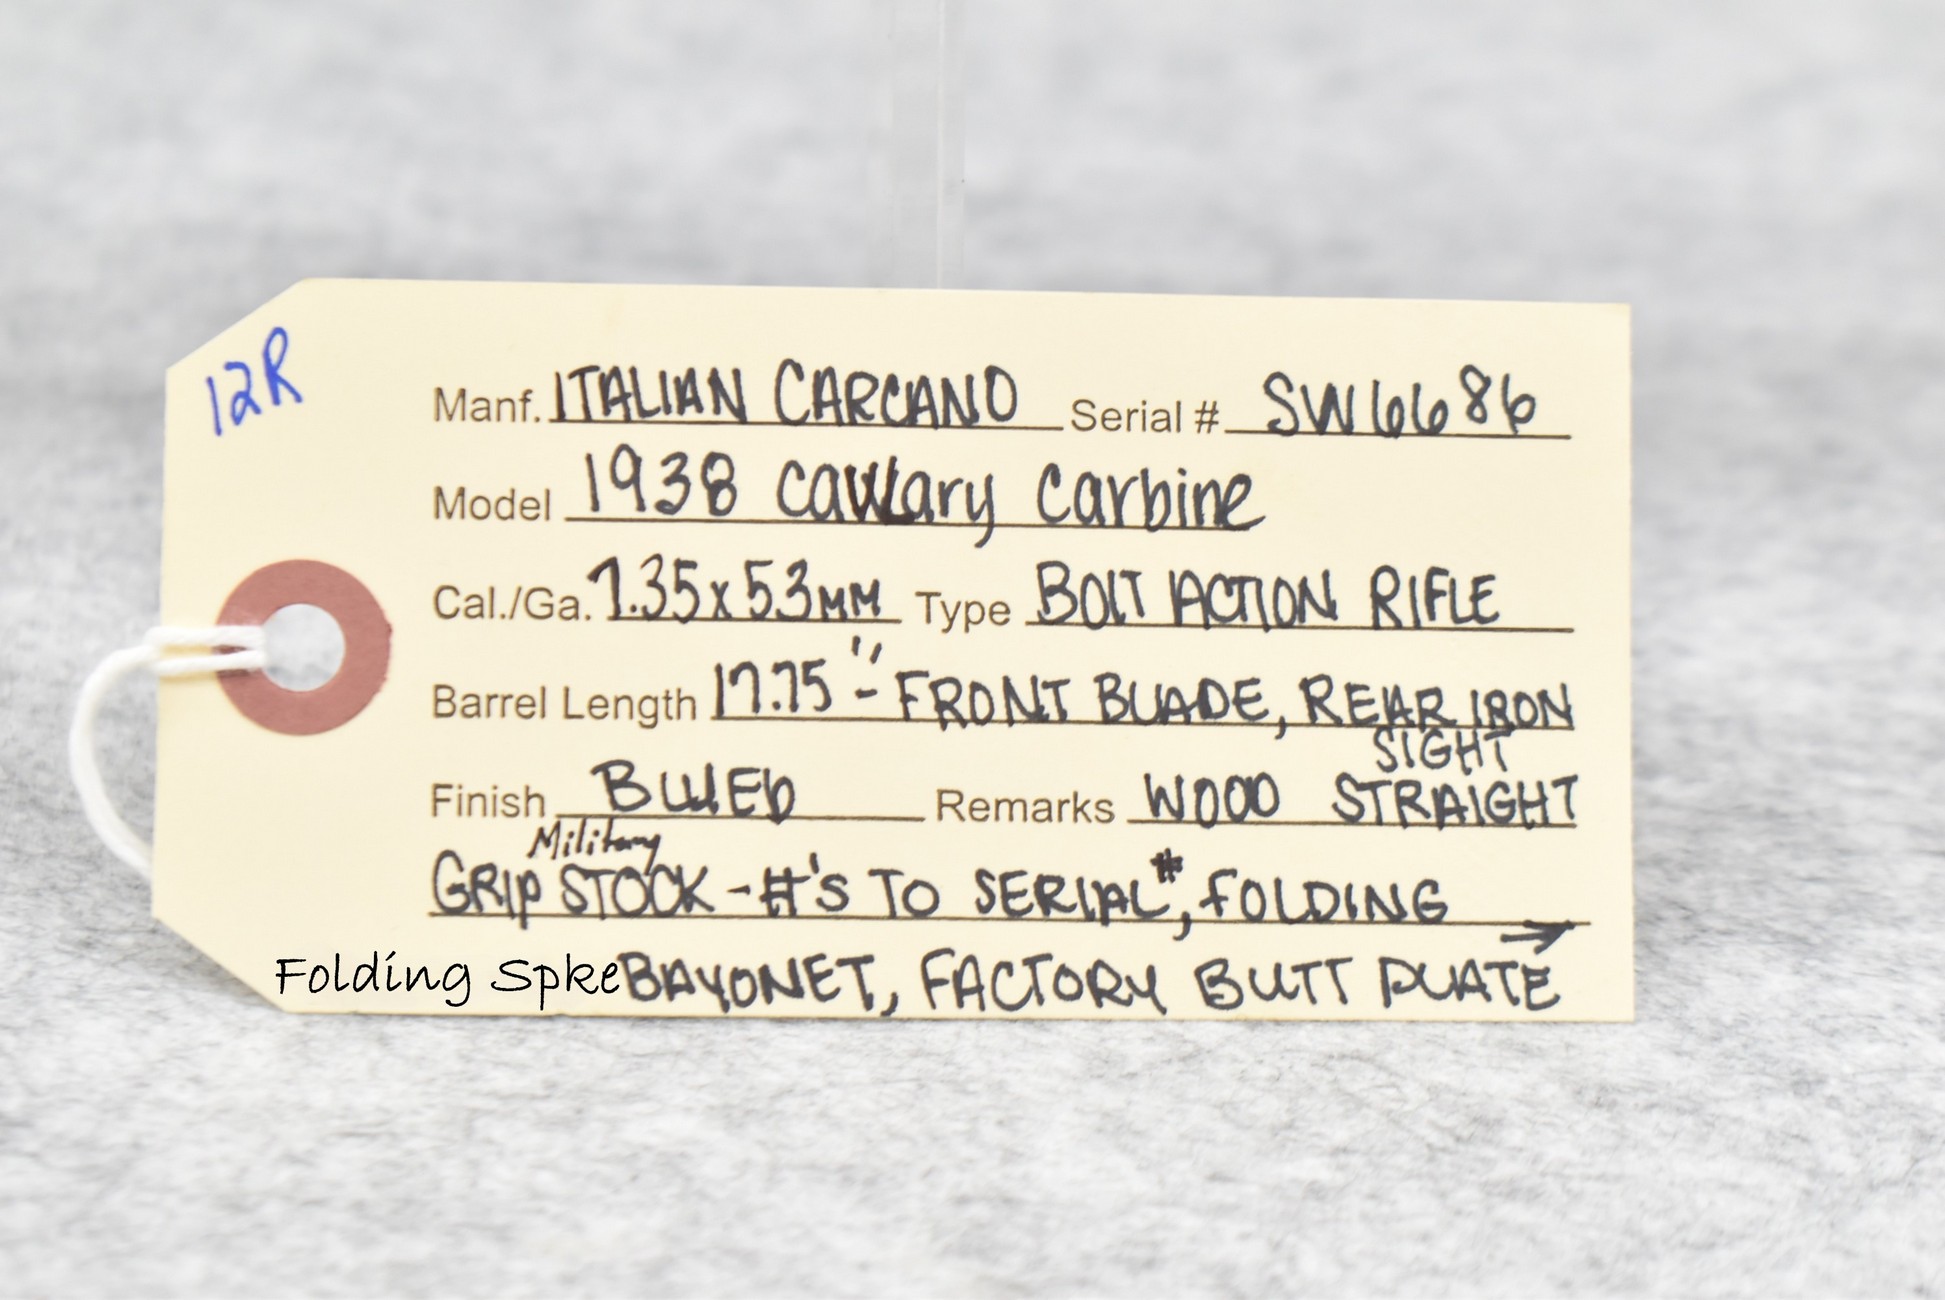 12R
Manf. ITALIAN CARCANO Serial # SW6686
Model 1938 cavalary carbine
Cal./Ga. 7.35x53MM Type BOLT ACTION RIFLE
Barrel Length 17.75" - FRONT BLADE, REAR IRON
SIGHT
Finish BLUED Remarks WOOD STRAIGHT
Military
GRIP STOCK - #'S TO SERIAL#, FOLDING →
Folding Spke BAYONET, FACTORY BUTT PLATE